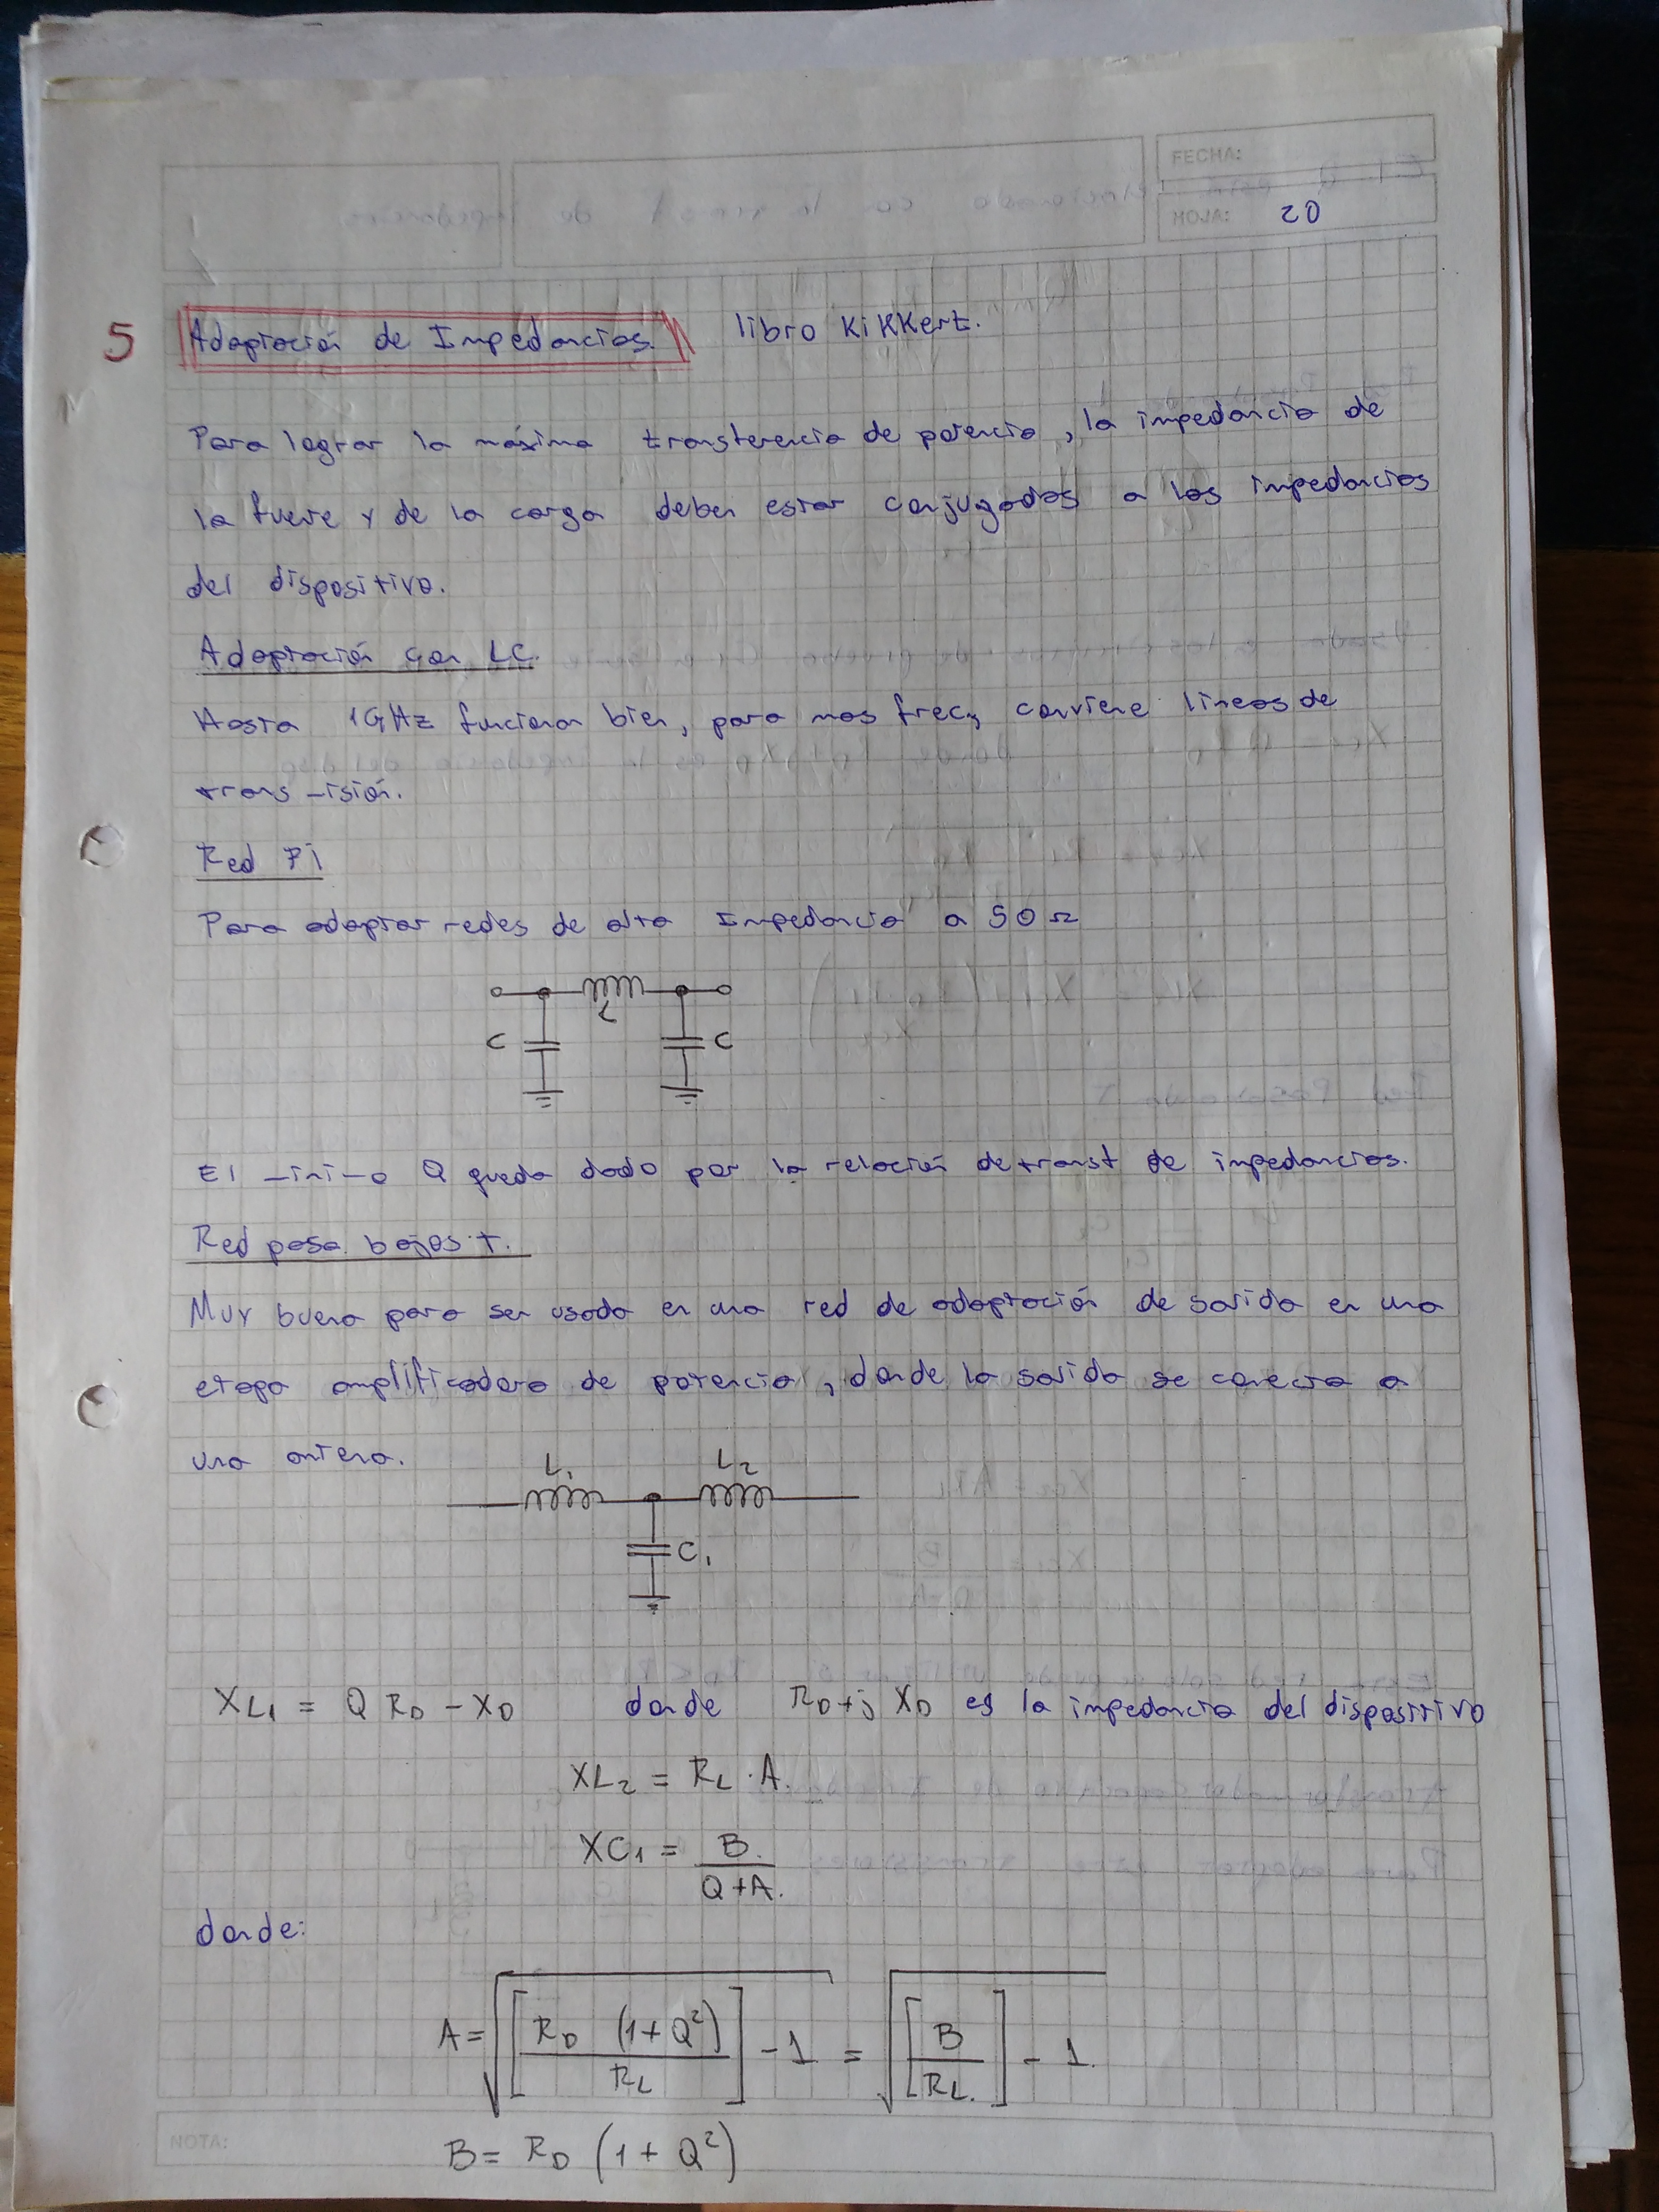 FECHA:
HOJA: 20
5 Adaptación de Impedancias. libro Kikkert.
Para lograr la máxima transferencia de potencia, la impedancia de
la fuente y de la carga deben estar conjugadas a las impedancias
del dispositivo.
Adaptación con LC.
Hasta 1GHz funcionan bien, para mas frec, conviene lineas de
transmisión.
Red Pi
Para adaptar redes de alta Impedancia a 50 Ω
L
C C
El minimo Q queda dado por la relación de transf de impedancias.
Red pasa bajos T.
Muy buena para ser usada en una red de adaptación de salida en una
etapa amplificadora de potencia, donde la salida se conecta a
una antena.
L1 L2
C1
XL1 = Q RD - XD donde RD+j XD es la impedancia del dispositivo
XL2 = RL · A.
XC1 = B. / Q+A.
donde:
A = √([RD (1+Q²) / RL] - 1) = √([B / RL.] - 1.)
NOTA:
B = RD (1 + Q²)